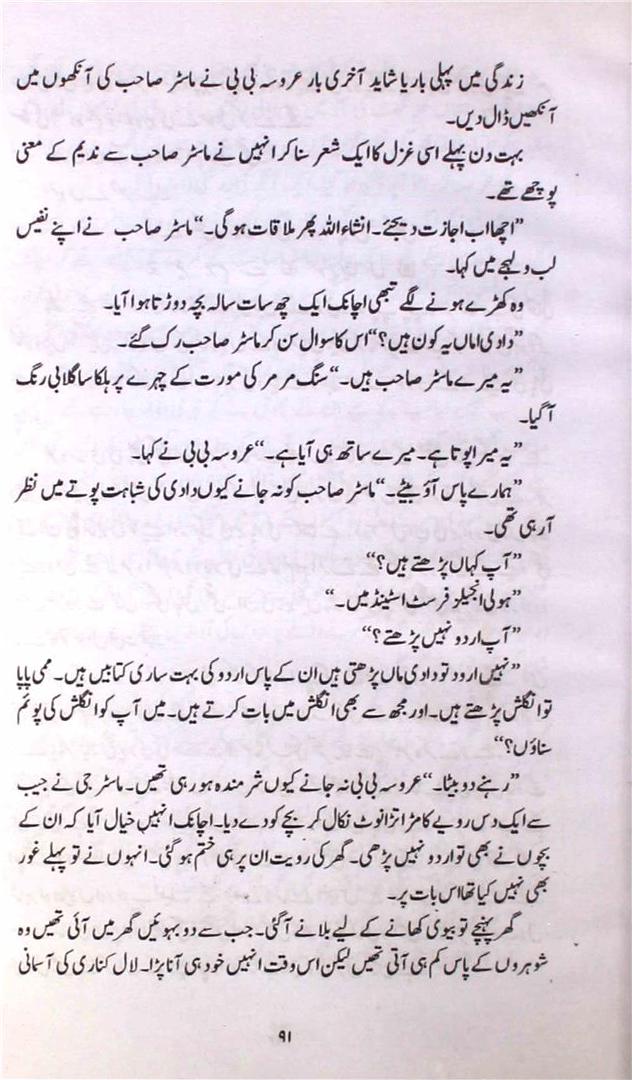 زندگی میں پہلی بار یا شاید آخری بار عروسہ بی بی نے ماسٹر صاحب کی آنکھوں میں
آنکھیں ڈال دیں۔
بہت دن پہلے اسی غزل کا ایک شعر سنا کر انہیں نے ماسٹر صاحب سے ندیم کے معنی
پوچھے تھے۔
”اچھا اب اجازت دیجئے۔ انشاء اللہ پھر ملاقات ہوگی۔“ ماسٹر صاحب نے اپنے نفیس
لب و لہجے میں کہا۔
وہ کھڑے ہونے لگے تبھی اچانک ایک چھ سات سالہ بچہ دوڑتا ہوا آیا۔
”دادی اماں یہ کون ہیں؟“ اس کا سوال سن کر ماسٹر صاحب رک گئے۔
”یہ میرے ماسٹر صاحب ہیں۔“ سنگ مرمر کی مورت کے چہرے پر ہلکا سا گلابی رنگ
آ گیا۔
”یہ میرا پوتا ہے۔ میرے ساتھ ہی آیا ہے۔“ عروسہ بی بی نے کہا۔
”ہمارے پاس آؤ بیٹے۔“ ماسٹر صاحب کو نہ جانے کیوں دادی کی شباہت پوتے میں نظر
آرہی تھی۔
”آپ کہاں پڑھتے ہیں؟“
”ہولی انجیلز فرسٹ اسٹینڈ میں۔“
”آپ اردو نہیں پڑھتے؟“
”نہیں اردو تو دادی ماں پڑھتی ہیں ان کے پاس اردو کی بہت ساری کتابیں ہیں۔ ممی پاپا
تو انگلش پڑھتے ہیں۔ اور مجھ سے بھی انگلش میں بات کرتے ہیں۔ میں آپ کو انگلش کی پوئم
سناؤں؟“
”رہنے دو بیٹا۔“ عروسہ بی بی نہ جانے کیوں شرمندہ ہو رہی تھیں۔ ماسٹر جی نے جیب
سے ایک دس روپے کا مڑا تڑا نوٹ نکال کر بچے کو دے دیا۔ اچانک انہیں خیال آیا کہ ان کے
بچوں نے بھی تو اردو نہیں پڑھی۔ گھر کی رویت ان پر ہی ختم ہو گئی۔ انہوں نے تو پہلے غور
بھی نہیں کیا تھا اس بات پر۔
گھر پہنچے تو بیوی کھانے کے لیے بلانے آگئی۔ جب سے دو بہوئیں گھر میں آئی تھیں وہ
شوہروں کے پاس کم ہی آتی تھیں لیکن اس وقت انہیں خود ہی آنا پڑا۔ لال کناری کی آسمانی
۹۱